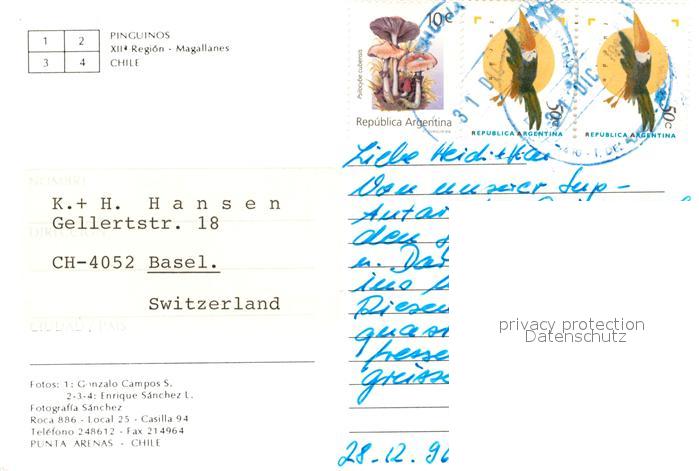 1 2
3 4
PINGUINOS
XIIª Región - Magallanes
CHILE
10c
Psilocybe cubensis
República Argentina
50c
REPUBLICA ARGENTINA
50c
REPUBLICA ARGENTINA
31 DIC
31 DIC
NOMBRE
K.+ H. Hansen
Gellertstr. 18
CH-4052 Basel.
Switzerland
CIUDAD, PAIS
Fotos: 1: Gonzalo Campos S.
2-3-4: Enrique Sánchez L.
Fotografía Sánchez
Roca 886 - Local 25 - Casilla 94
Teléfono 248612 - Fax 214964
PUNTA ARENAS - CHILE
Liebe Heidi
Von unserer Sup-
Antar
den
u. Dar
ins
Riesen
quasi
fresse
28.12.96
privacy protection
Datenschutz